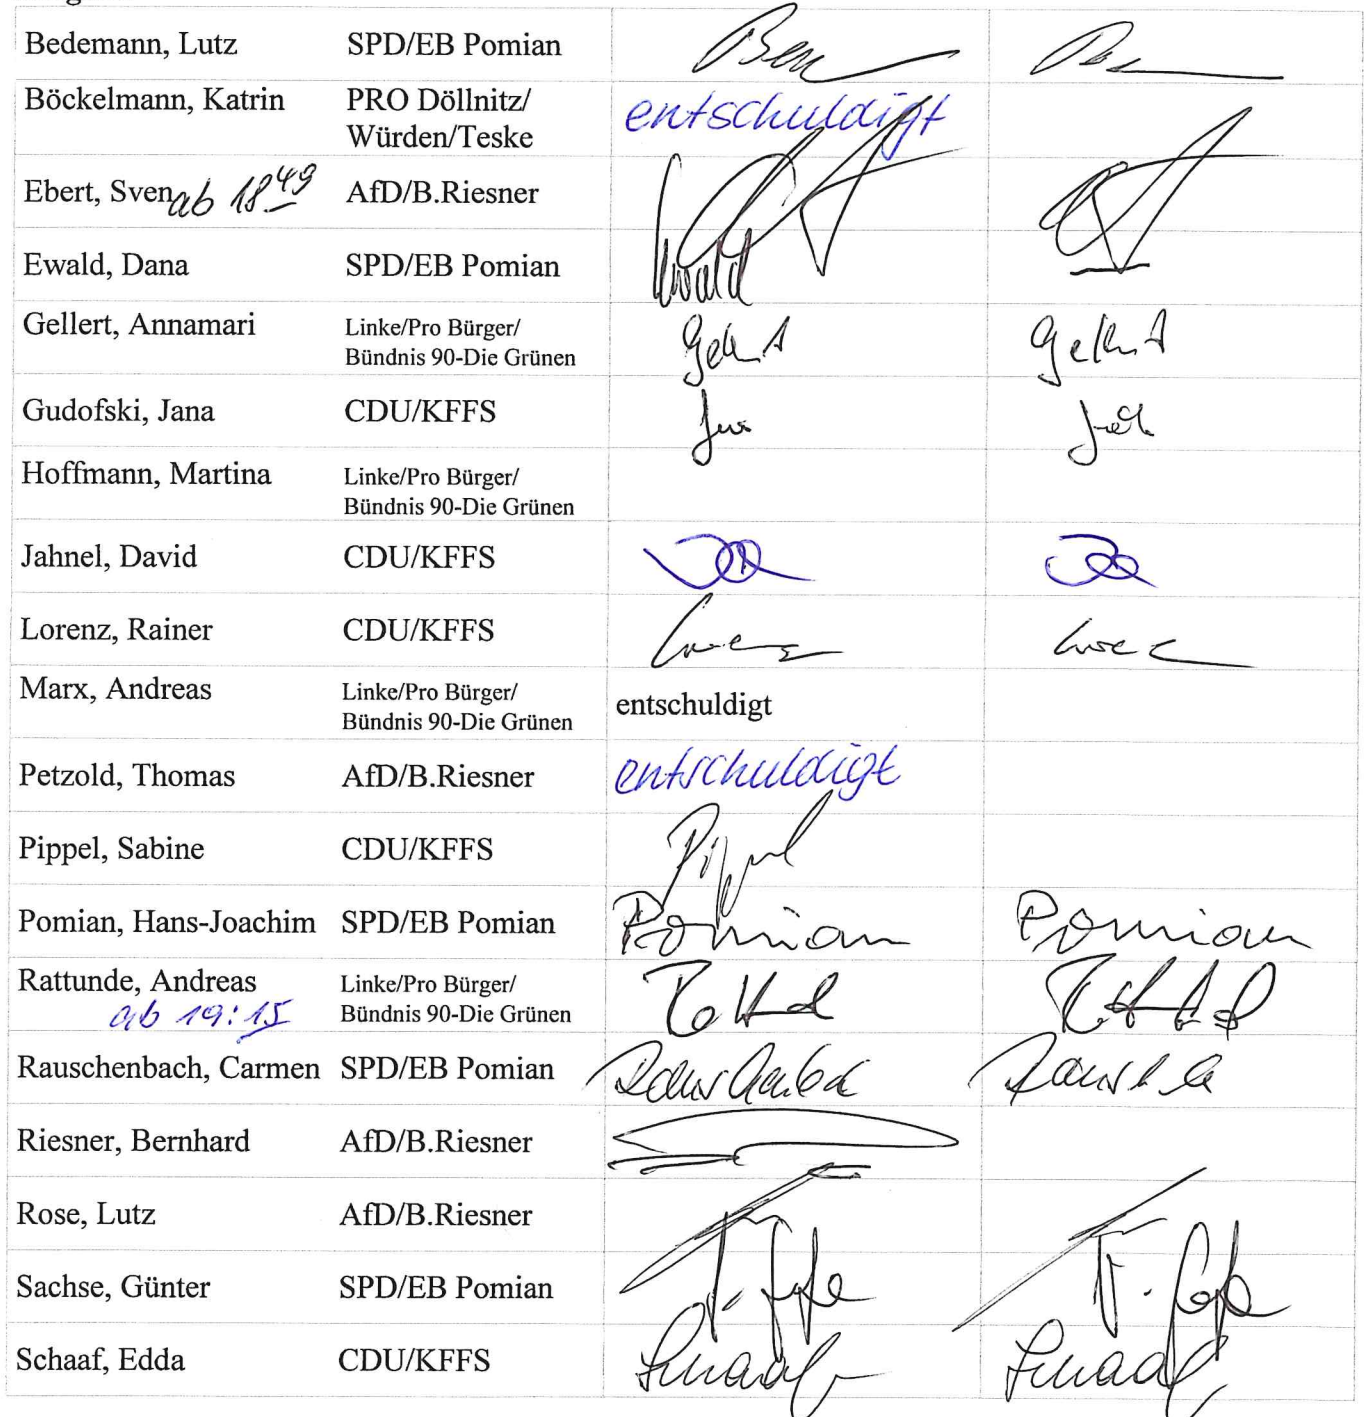 Bedemann, Lutz SPD/EB Pomian
Böckelmann, Katrin PRO Döllnitz/ entschuldigt
Würden/Teske
Ebert, Sven ab 18 49 AfD/B.Riesner
Ewald, Dana SPD/EB Pomian Ewald
Gellert, Annamari Linke/Pro Bürger/
Bündnis 90-Die Grünen
Gudofski, Jana CDU/KFFS
Hoffmann, Martina Linke/Pro Bürger/
Bündnis 90-Die Grünen
Jahnel, David CDU/KFFS
Lorenz, Rainer CDU/KFFS
Marx, Andreas Linke/Pro Bürger/ entschuldigt
Bündnis 90-Die Grünen
Petzold, Thomas AfD/B.Riesner entschuldigt
Pippel, Sabine CDU/KFFS Pippel
Pomian, Hans-Joachim SPD/EB Pomian Pomian Pomian
Rattunde, Andreas Linke/Pro Bürger/
ab 19:15 Bündnis 90-Die Grünen
Rauschenbach, Carmen SPD/EB Pomian
Riesner, Bernhard AfD/B.Riesner
Rose, Lutz AfD/B.Riesner
Sachse, Günter SPD/EB Pomian
Schaaf, Edda CDU/KFFS